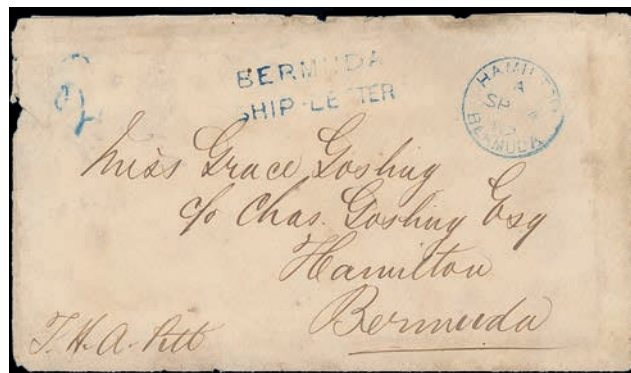 BERMUDA
SHIP-LETTER
HAMILTON
A
SP
BERMUDA
Miss Grace Gosling
c/o Chas. Gosling Esq
Hamilton
Bermuda
T. H. A. Pitt